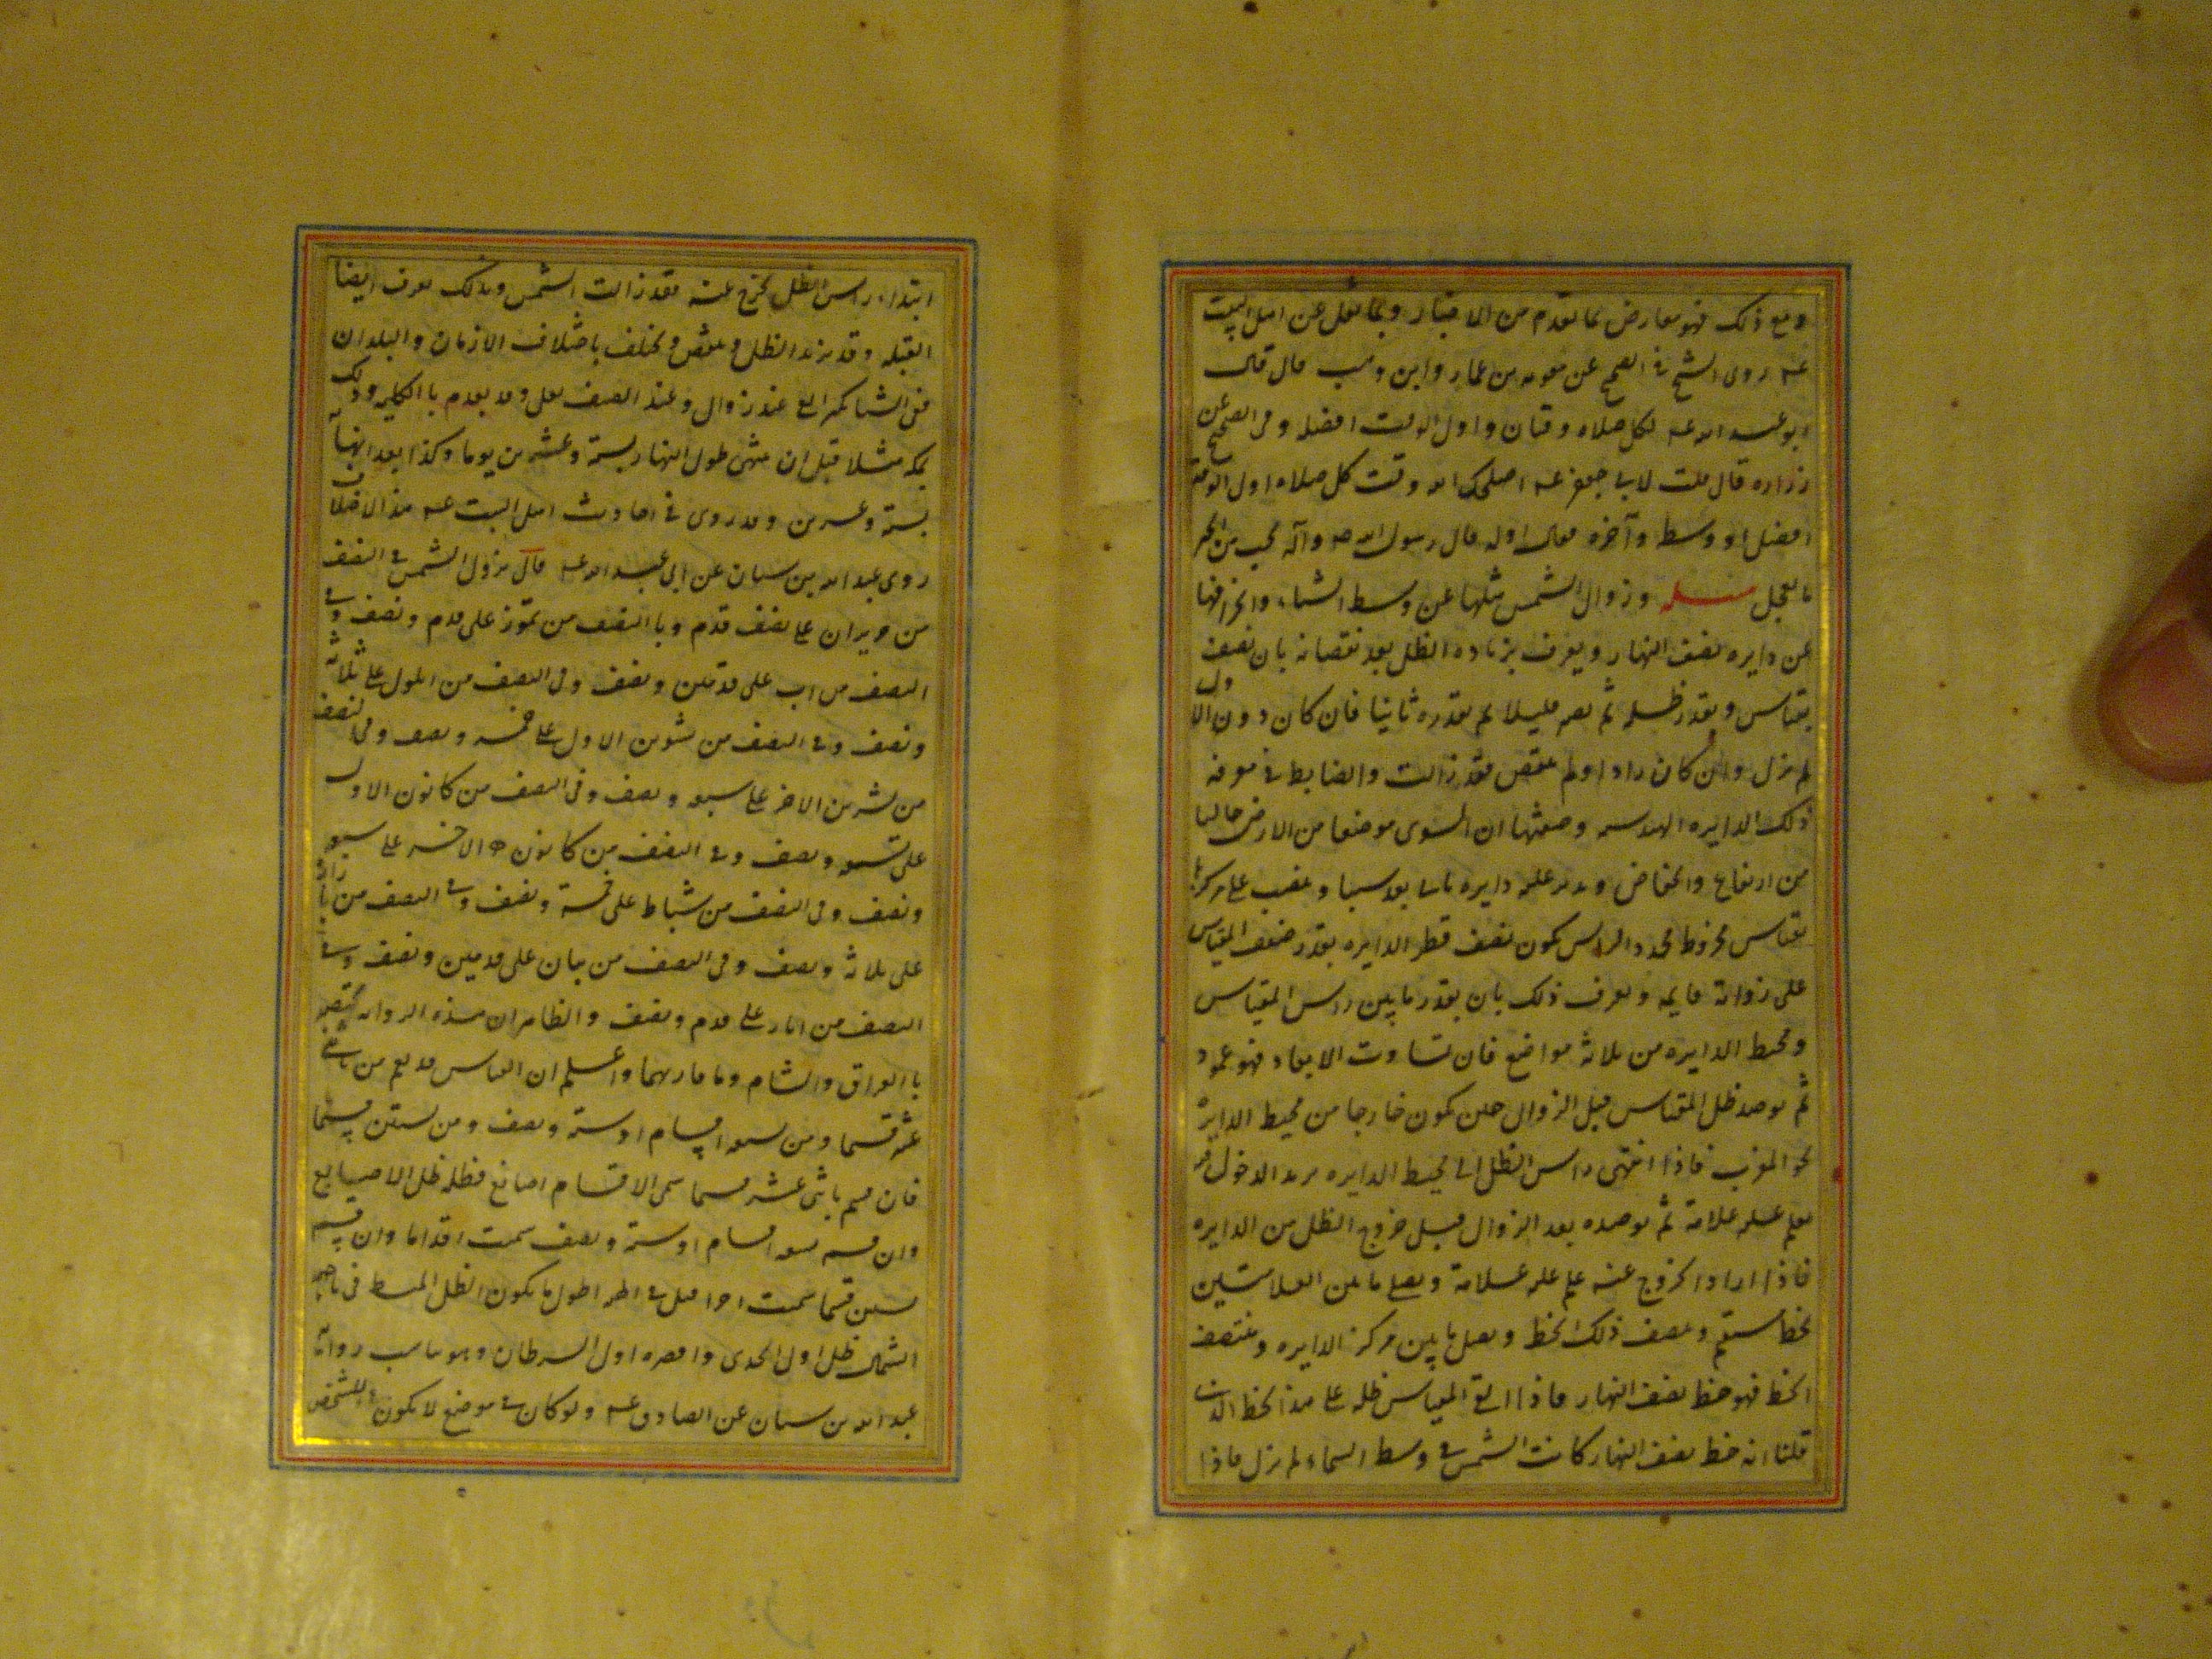 ومع ذلك فهو معارض بما تقدم من الاخبار وبما نقل عن اهل البيت
عه روى الشيخ في الصحيح عن معويه بن عمار وابن وهب قال قال
ابو عبد الله عه لكل صلاه وقتان واول الوقت افضله وفى الصحيح عن
زراره قال قلت لابي جعفر عه اصلحك الله وقت كل صلاه اول الوقت
افضل او وسطه وآخره فقال اوله قال رسول الله صه وآله يحب من الخير
ما يعجل مسله وزوال الشمس ميلها عن وسط السماء وانحرافها
عن دايره نصف النهار ويعرف بزياده الظل بعد نقصانه بان نصف
مقياس ويقدر ظله ثم نصبر قليلا ثم نقدره ثانيا فان كان دون الاول
لم يزل وان كان زاد او لم ينقص فقد زالت والضابط في معرفه
ذلك الدايره الهندسيه وصفتها ان السوى موضعا من الارض خاليا
من ارتفاع وانخفاض ويدير عليه دايره باى بعد شيا وينصب على مركزها
مقياس مخروط محدد الراس يكون نصف قطر الدايره بقدر ضعف المقياس
على زواية قايمه ويعرف ذلك بان يقدر ما بين راس المقياس
ومحيط الدايره من ثلاثه مواضع فان تساوت الابعاد فهو عمود
ثم يرصد ظل المقياس قبل الزوال حين يكون خارجا من محيط الدايره
نحو المغرب فاذا انتهى راس الظل الى محيط الدايره يريد الدخول فيه
يعلم عليه علامة ثم يرصده بعد الزوال قبل خروج الظل من الدايره
فاذا اراد الخروج عنه علم عليه علامة ويصل ما بين العلامتين
بخط مستقيم وينصف ذلك الخط ويصل ما بين مركز الدايره ومنتصف
الخط فهو خط نصف النهار فاذا القى المقياس ظله على هذا الخط الذى
قلنا انه خط نصف النهار كانت الشمس في وسط السماء لم يزل فاذا
ابتداء راس الظل يخرج عنه فقد زالت الشمس وبذلك يعرف ايضا
القبله وقد يزيد الظل وينقص ويختلف باختلاف الازمان والبلدان
ففى الشتا يكثر الفى عند زوال وعند الصيف يقل وقد يعدم بالكليه وذلك
بمكه مثلا قبل ان ينتهى طول النهار بستة وعشرين يوما وكذا بعد انتهائه
بستة وعشرين وقد روى في احاديث اهل البيت عه هذا الاختلاف
روى عبد الله بن سنان عن ابي عبد الله عه قال تزول الشمس في النصف
من حزيران على نصف قدم وبالنصف من تموز على قدم ونصف وفي
النصف من اب على قدمين ونصف وفى النصف من ايلول على ثلاثه
ونصف وفي النصف من تشرين الاول على خمسه ونصف وفى النصف
من تشرين الاخر على سبعه ونصف وفى النصف من كانون الاول
على تسعه ونصف وفي النصف من كانون الاخر على سبعه
ونصف وفى النصف من شباط على خمسة ونصف وفي النصف من اذار
على ثلاثه ونصف وفى النصف من نيسان على قدمين ونصف وفي
النصف من ايار على قدم ونصف والظاهر ان هذه الروايه تختص
بالعراق والشام وما قاربهما واعلم ان المقياس قد يقسم من باثنى
عشر قسما ومن سبعه اقسام او ستة ونصف ومن ستين قسما
فان قسم باثنى عشر قسما سمى الاقسام اصابع فظله ظل الاصابع
وان قسم سبعه اقسام او ستة ونصف سميت اقداما وان قسم
ستين قسما سميت اجزا قيل في اطول ما يكون الظل المبسط فى ناحيه
الشمال ظل اول الجدى واقصره اول السرطان وهو يناسب روايه
عبد الله بن سنان عن الصادق عه ولو كان في موضع لا يكون للشخص